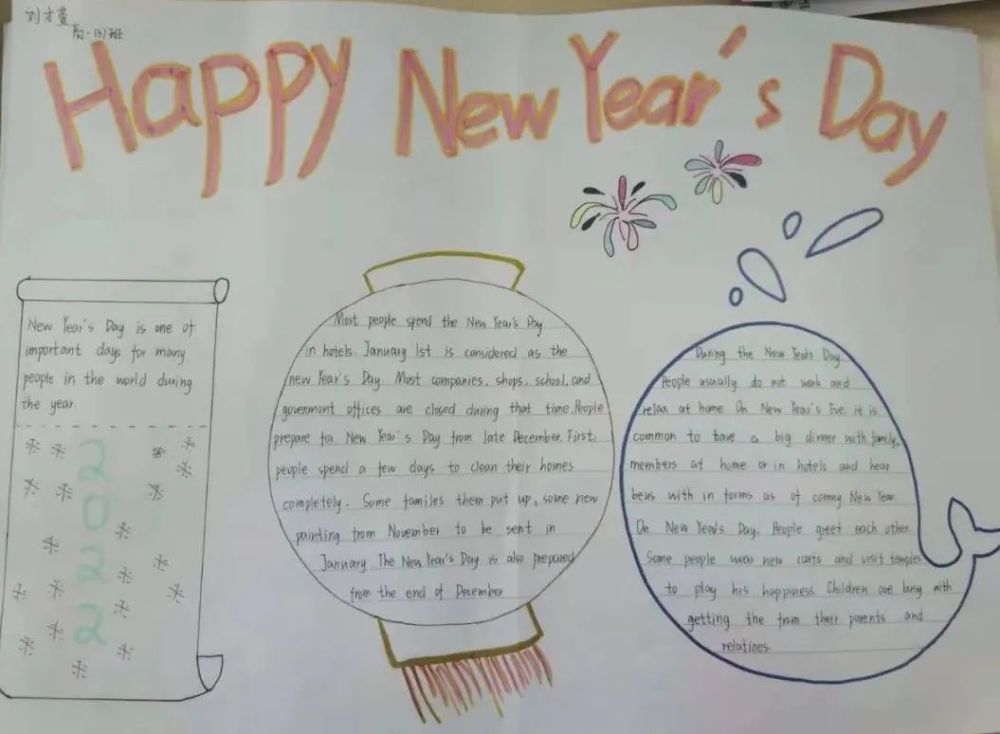 刘才萱
高一(3)班
Happy New Year's Day
New Year's Day is one of
important days for many
people in the world during
the year.
2022
Most people spend the New Year's Day
in hotels. January 1st is considered as the
new Year's Day. Most companies, shops, school, and
govenment offices are closed during that time. People
prepare for New Year's Day from late December. First,
people spend a few days to clean their homes
completely. Some familes them put up, some new
painting from November to be sent in
January. The New Year's Day is also prepared
from the end of December
During the New Year's Day
People usually do not work and
relax at home On New Year's Eve, it is
common to have a big dinner with family,
members at home or in hotels and hear
with in forms as of New Year.
On New Year's Day, People greet each other.
Some people wear new and visit temples
to play his happiness Children are busy with
getting the from their parents and
relatines